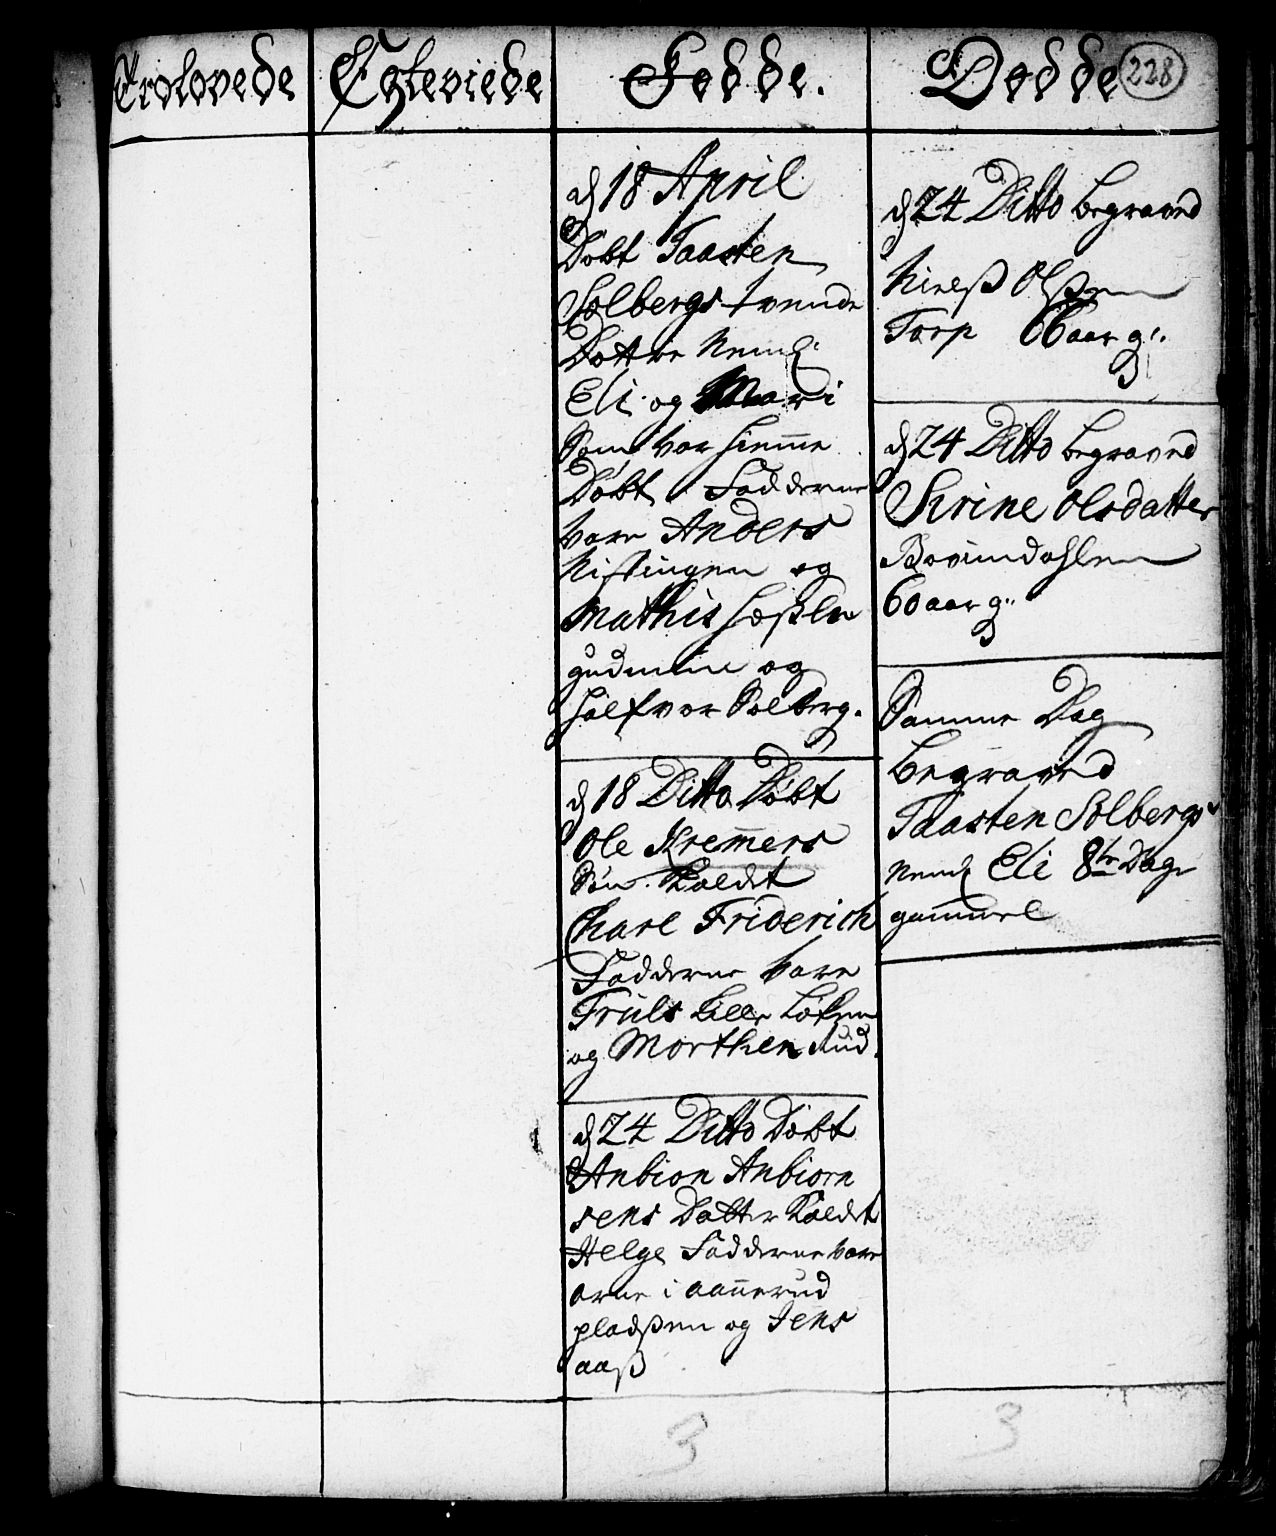 Trolovede
Egteviede
Fødde.
Dødde
228
d 18 April
Døbt Taasten
Solbergs tvende
Døttre Neml
Eli og Mari
Som var hieme
Døbt, Fadderne
vare Anders
Kistingen og
Mathis
og
Halfvor Solberg.
d 18 Ditto Døbt
Ole Kremers
Søn Kaldet
Charl Friderich
Fadderne vare
Truls Lille Løken
og Morthen Rud.
d 24 Ditto Døbt
Anbion Anbiorn
sens Datter Kaldet
Helge Fadderne vare
arne i aanerud
pladßen og Jens
aaß
3
d 24 Ditto begraved
Nielß Olßen
Torp 66 aar g:
d 24 Ditto begraved
Sirine Olsdatter
60 aar g:
Samme Dag
begraved
Taasten Solbergs
Neml Eli 8te Dage
gammel
3